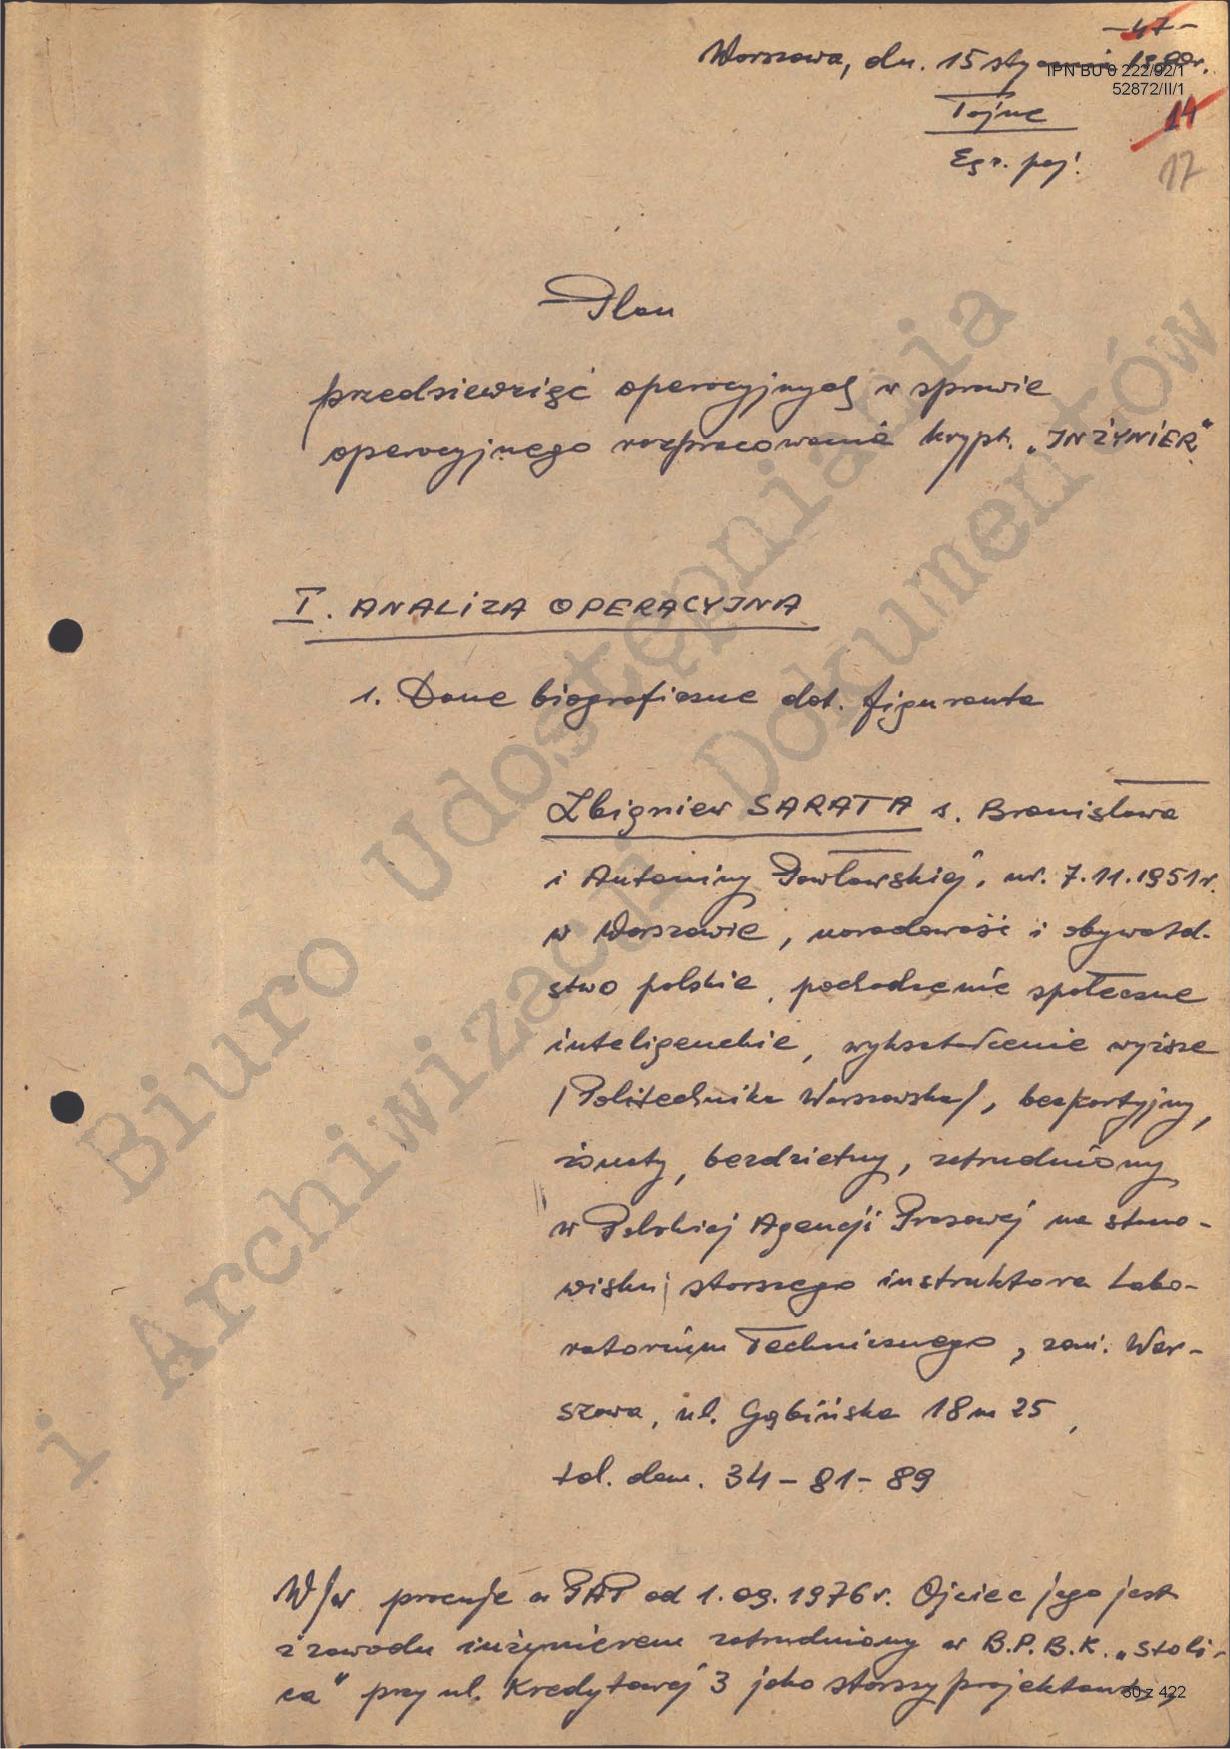 -47-
Warszawa, dn. 15 stycznia 1980r.
IPN BU 0 222/92/1
52872/II/1
Tajne
14
Egz. poj.
17
Plan
przedsięwzięć operacyjnych w sprawie
operacyjnego rozpracowania krypt. „INŻYNIER"
I. ANALIZA OPERACYJNA
1. Dane biograficzne dot. figuranta
Zbigniew SARATA s. Bronisława
i Antoniny Pawłowskiej, ur. 7.11.1951r.
w Warszawie, narodowość i obywatel-
stwo polskie, pochodzenie społeczne
inteligenckie, wykształcenie wyższe
/Politechnika Warszawska/, bezpartyjny,
żonaty, bezdzietny, zatrudniony
w Polskiej Agencji Prasowej na stano-
wisku starszego instruktora Labo-
ratorium Technicznego, zam. War-
szawa, ul. Gąbińska 18 m 25,
tel. dom. 34-81-89
W/w pracuje w PAP od 1.09.1976r. Ojciec jego jest
z zawodu inżynierem zatrudniony w B.P.B.K. „Stoli-
ca" przy ul. Kredytowej 3 jako starszy projektant
30 z 422
Biuro Udostępniania
i Archiwizacji Dokumentów